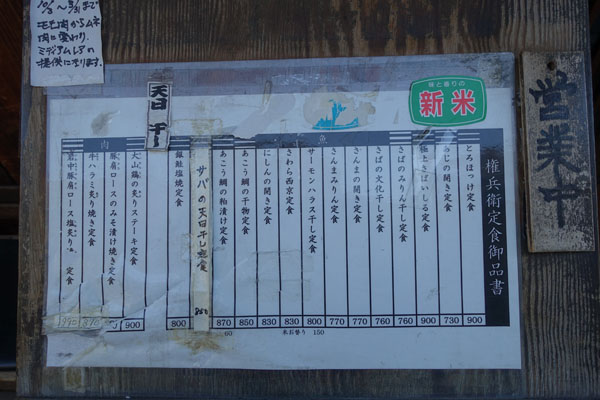 10/3〜8/31まで
モモ肉からムネ
肉に変わり、
ミディアムレアの
提供になります。
味と香りの
新米
営業中
権兵衛定食御品書
魚
とろほっけ定食 900
あじの開き定食 730
極上さばいしる定食 900
さばのみりん干し定食 760
さばの文化干し定食 760
さんまの開き定食 770
さんまみりん定食 770
サーモンハラス干し定食 800
さわら西京定食 830
にしんの開き定食 830
あこう鯛の干物定食 850
あこう鯛の粕漬け定食 870
サバの天日干し定食 850
銀鮭塩焼定食 800
天日干し
肉
大山鶏の炙りステーキ定食 900
豚肩ロースのみそ漬け焼き定食
牛ハラミ炙り焼き定食 970
定食 970
60
本石替り 150